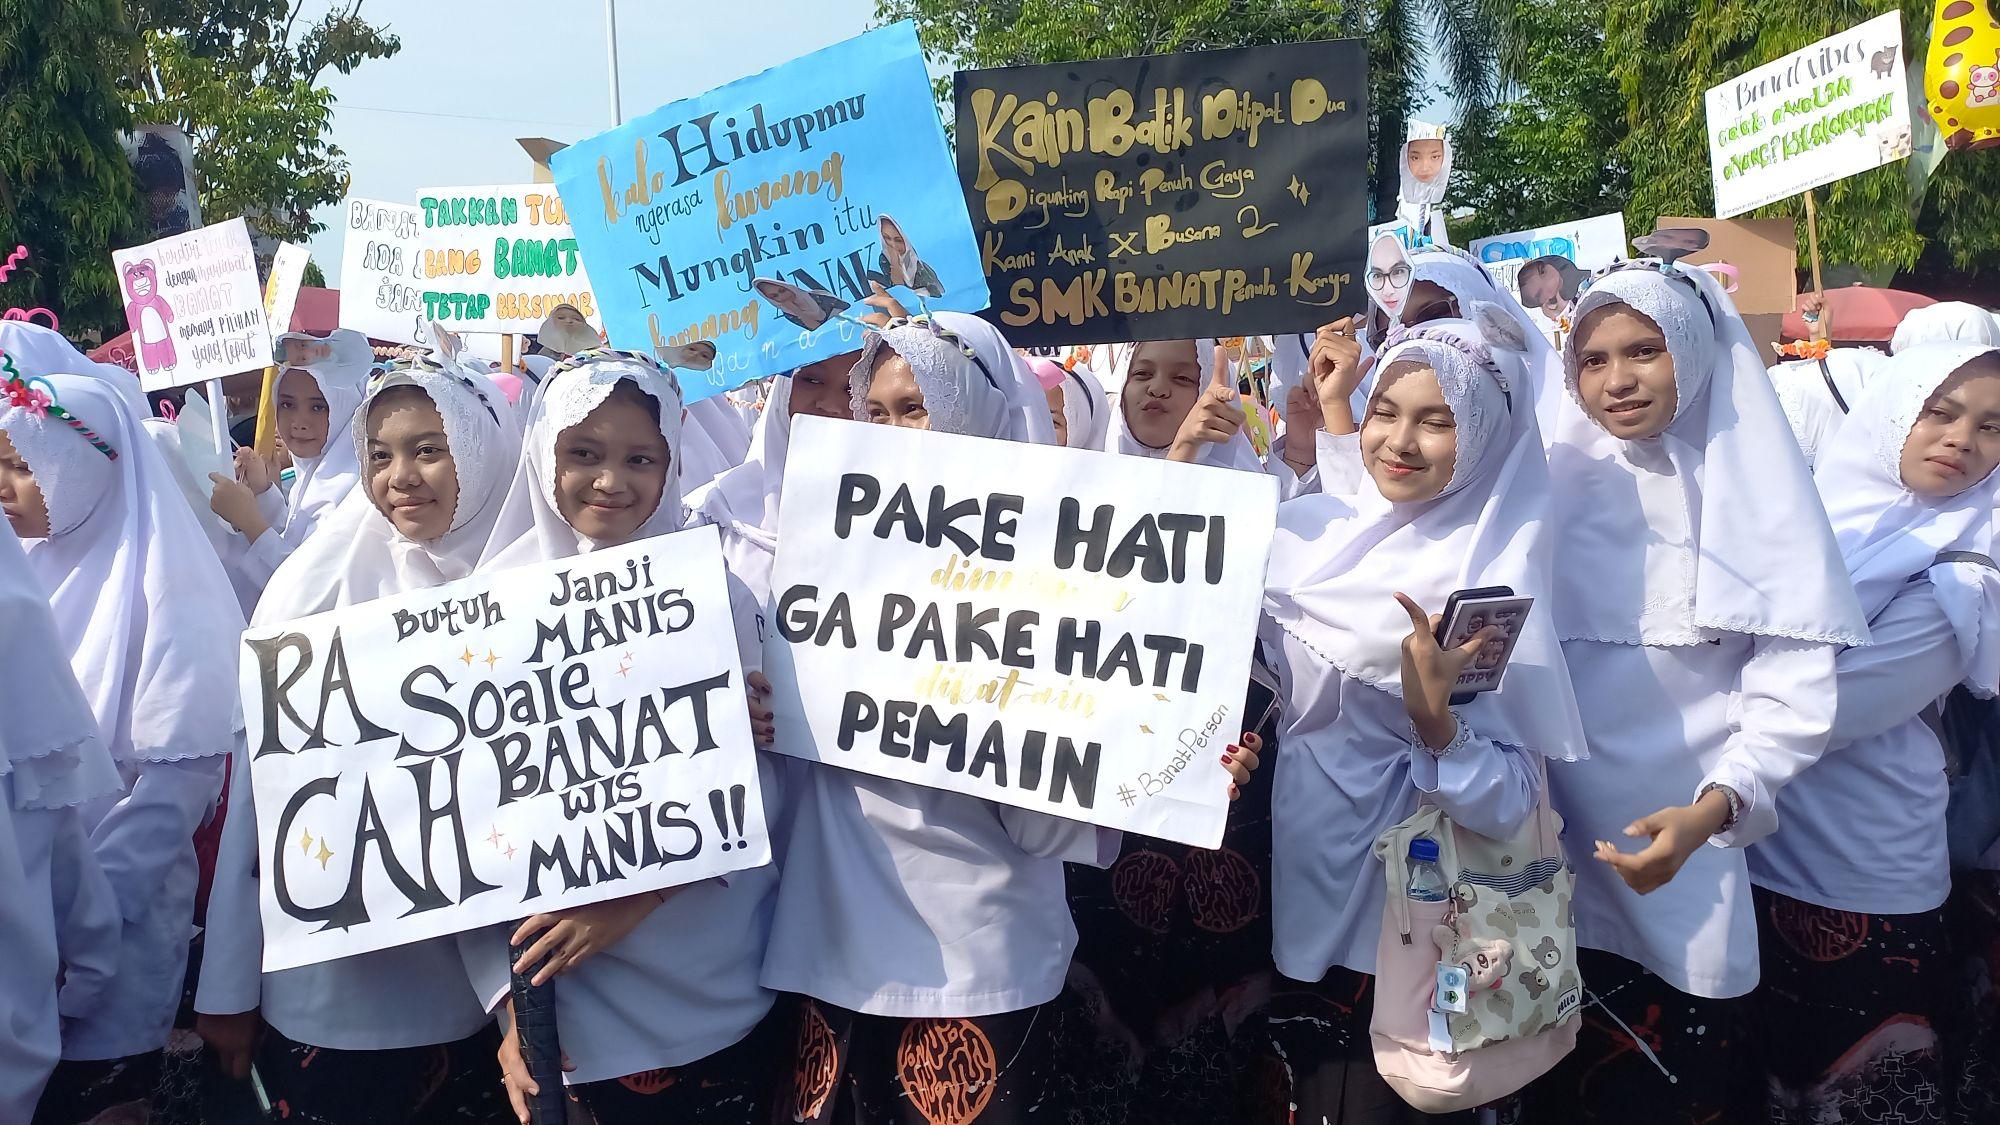 berdiri tegak
dengan martabat,
BANAT
memang PILIHAN
yang tepat
BANAT
ADA
JAN
TAKKAN
BANG BANAT
TETAP BERSINAR
kalo Hidupmu
ngerasa kurang
Mungkin itu
kurang ANAK
Banat
Kain Batik Dilipat Dua
Digunting Rapi Penuh Gaya
Kami Anak X Busana 2
SMK BANAT Penuh Karya
Banat vibes
RA Butuh Janji
MANIS
Soale
BANAT
CAH WIS
MANIS!!
PAKE HATI
GA PAKE HATI
dikatain
PEMAIN
#BanatPerson
HELLO